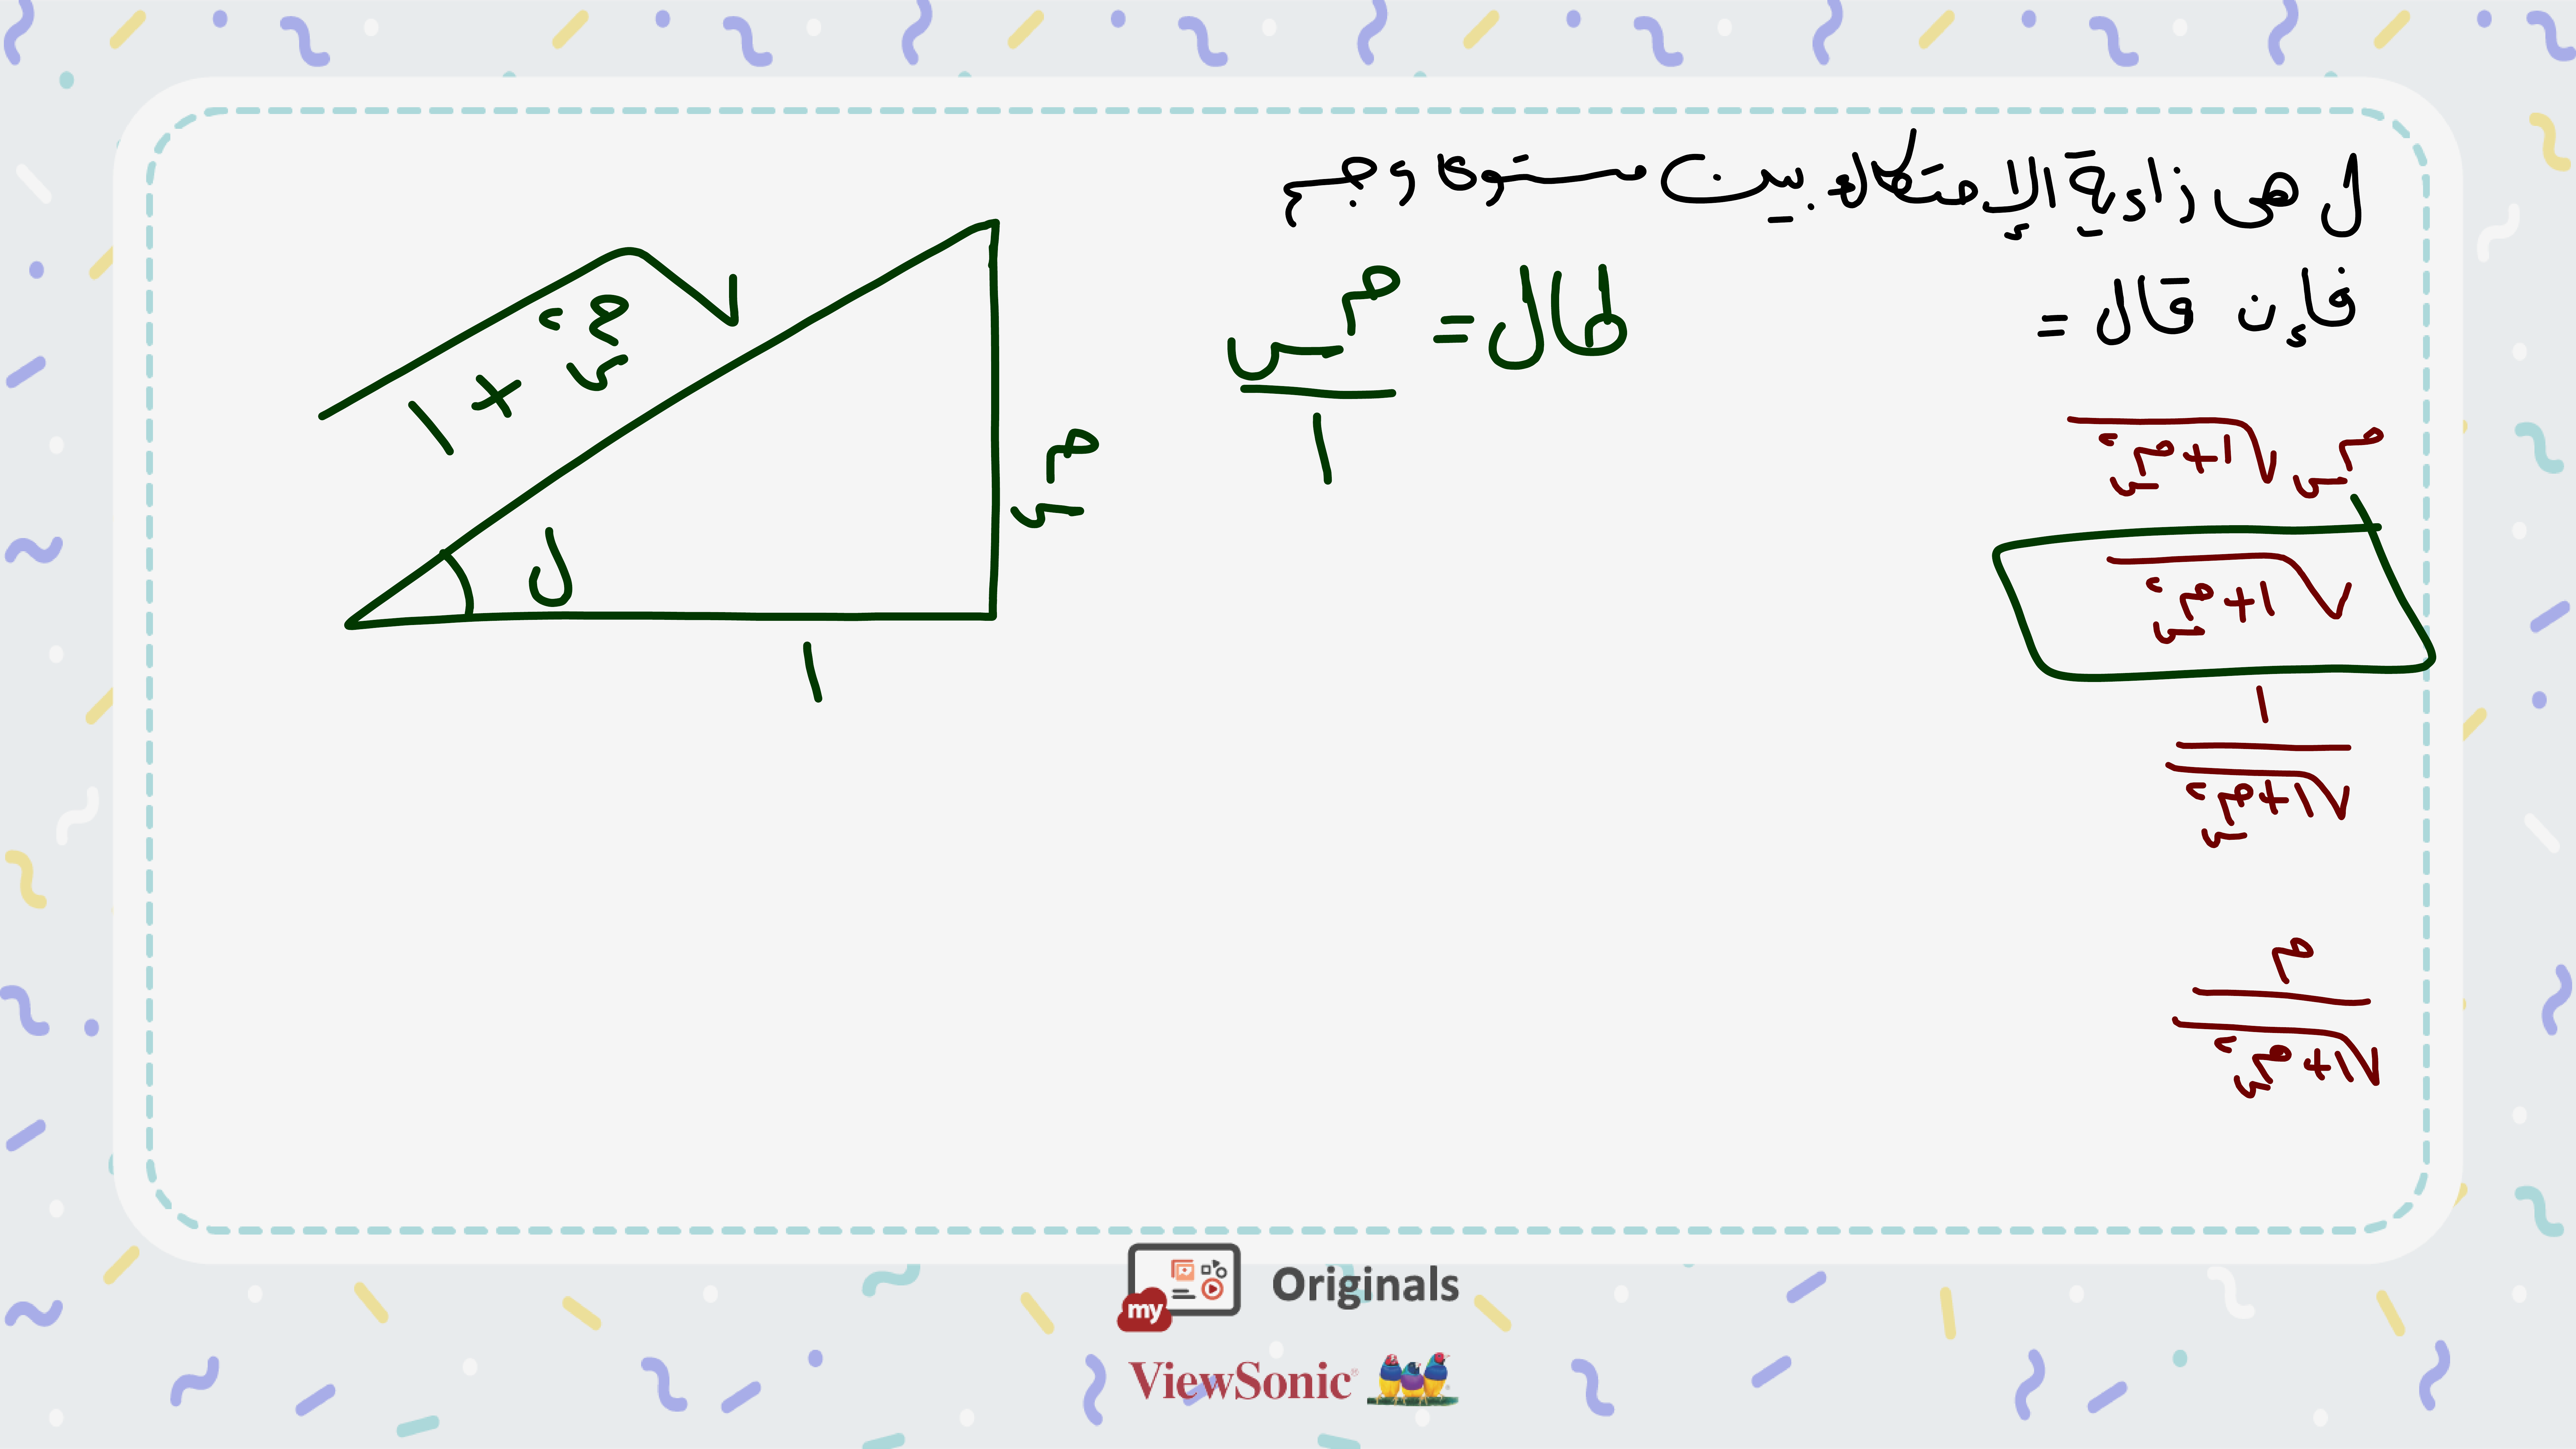 ل هى زاوية الإحتكاك بين مستوى و جسم
فإن قال =
طال = مس / ١
مس √١+مس٢
√١+مس٢
١ / √١+مس٢
م / √١+مس٢
√١+مس٢
مس
ل
١
my Originals
ViewSonic